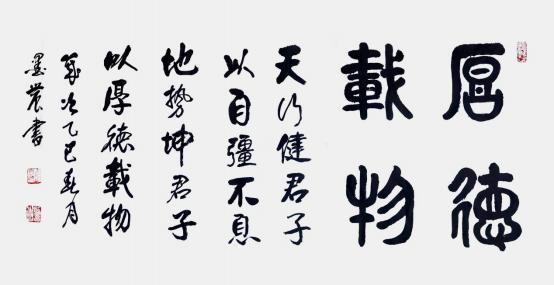 厚德
載物
天行健君子
以自彊不息
地勢坤君子
以厚德載物
歲次乙巳春月
墨農書